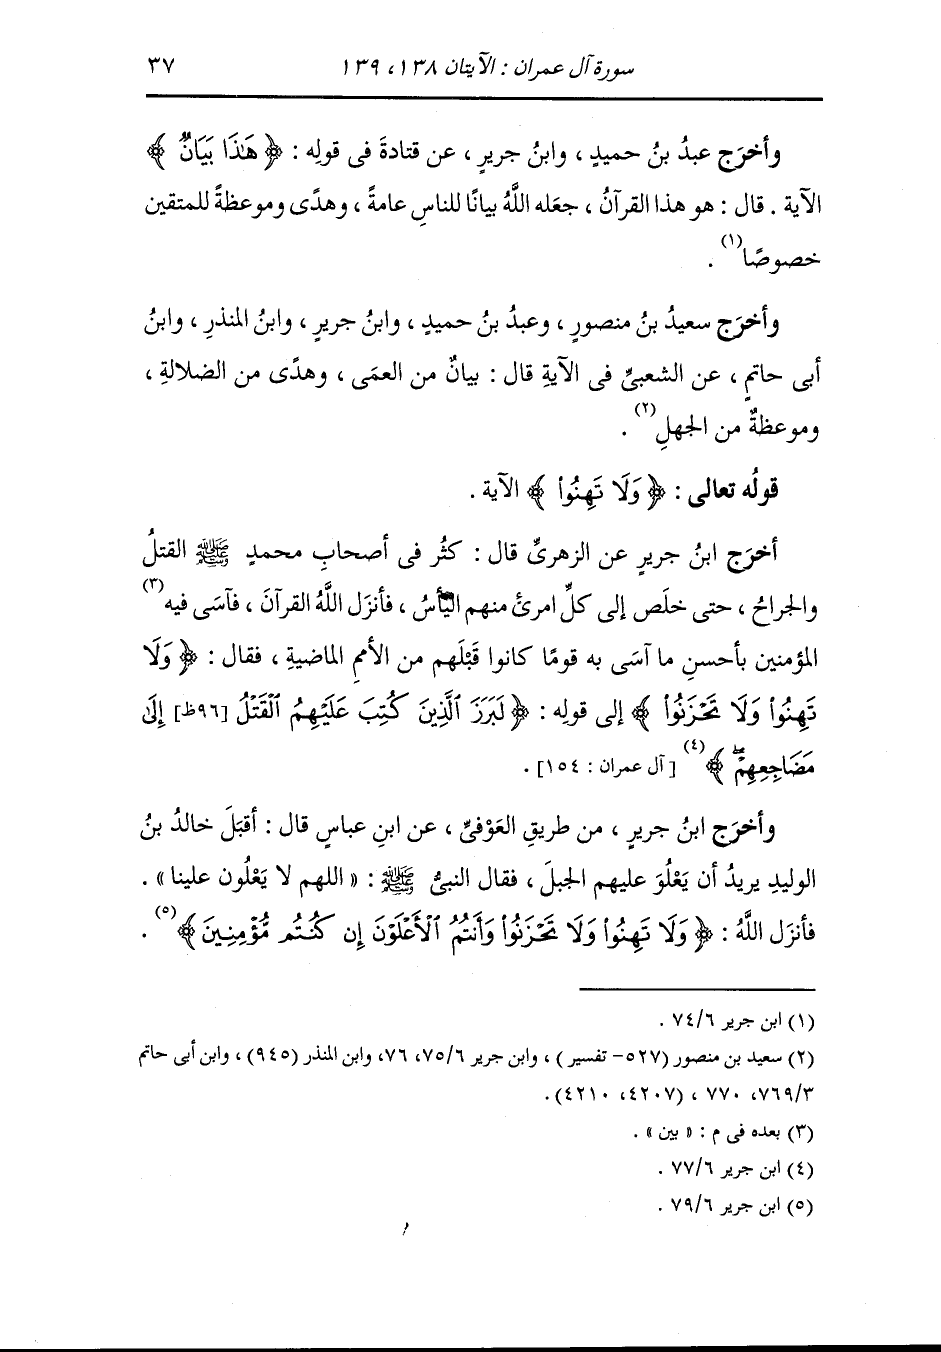 سورة آل عمران : الآيتان ١٣٨، ١٣٩ ٣٧
وأخرَج عبدُ بنُ حميدٍ ، وابنُ جريرٍ ، عن قتادةَ فى قولِه : ﴿ هَٰذَا بَيَانٌ ﴾
الآية . قال : هو هذا القرآنُ ، جعَله اللَّهُ بيانًا للناسِ عامةً ، وهدًى وموعظةً للمتقين
خصوصًا(١) .
وأخرَج سعيدُ بنُ منصورٍ ، وعبدُ بنُ حميدٍ ، وابنُ جريرٍ ، وابنُ المنذرِ ، وابنُ
أبى حاتمٍ ، عن الشعبىِّ فى الآيةِ قال : بيانٌ من العمَى ، وهدًى من الضلالةِ ،
وموعظةٌ من الجهلِ(٢) .
قولُه تعالى : ﴿ وَلَا تَهِنُوا۟ ﴾ الآية .
أخرَج ابنُ جريرٍ عن الزهرىِّ قال : كثُر فى أصحابِ محمدٍ ﷺ القتلُ
والجراحُ ، حتى خلَص إلى كلِّ امرئ منهم اليأسُ ، فأنزَل اللَّهُ القرآنَ ، فآسَى فيه(٣)
المؤمنين بأحسنِ ما آسَى به قومًا كانوا قَبْلَهم من الأممِ الماضيةِ ، فقال : ﴿ وَلَا
تَهِنُوا۟ وَلَا تَحْزَنُوا۟ ﴾ إلى قولِه : ﴿ لَبَرَزَ ٱلَّذِينَ كُتِبَ عَلَيْهِمُ ٱلْقَتْلُ [٩٦ظ] إِلَىٰ
مَضَاجِعِهِمْ ۖ ﴾(٤) [ آل عمران : ١٥٤] .
وأخرَج ابنُ جريرٍ ، من طريقِ العَوْفىِّ ، عن ابنِ عباسٍ قال : أقبَلَ خالدُ بنُ
الوليدِ يريدُ أن يَعْلُوَ عليهم الجبلَ ، فقال النبىُّ ﷺ : « اللهم لا يَعْلُون علينا » .
فأنزَل اللَّهُ : ﴿ وَلَا تَهِنُوا۟ وَلَا تَحْزَنُوا۟ وَأَنتُمُ ٱلْأَعْلَوْنَ إِن كُنتُم مُّؤْمِنِينَ ﴾(٥) .
(١) ابن جرير ٧٤/٦ .
(٢) سعيد بن منصور (٥٢٧- تفسير ) ، وابن جرير ٧٥/٦، ٧٦، وابن المنذر (٩٤٥) ، وابن أبى حاتم
٧٦٩/٣، ٧٧٠ ، (٤٢٠٧، ٤٢١٠).
(٣) بعده فى م : « بين » .
(٤) ابن جرير ٧٧/٦ .
(٥) ابن جرير ٧٩/٦ .